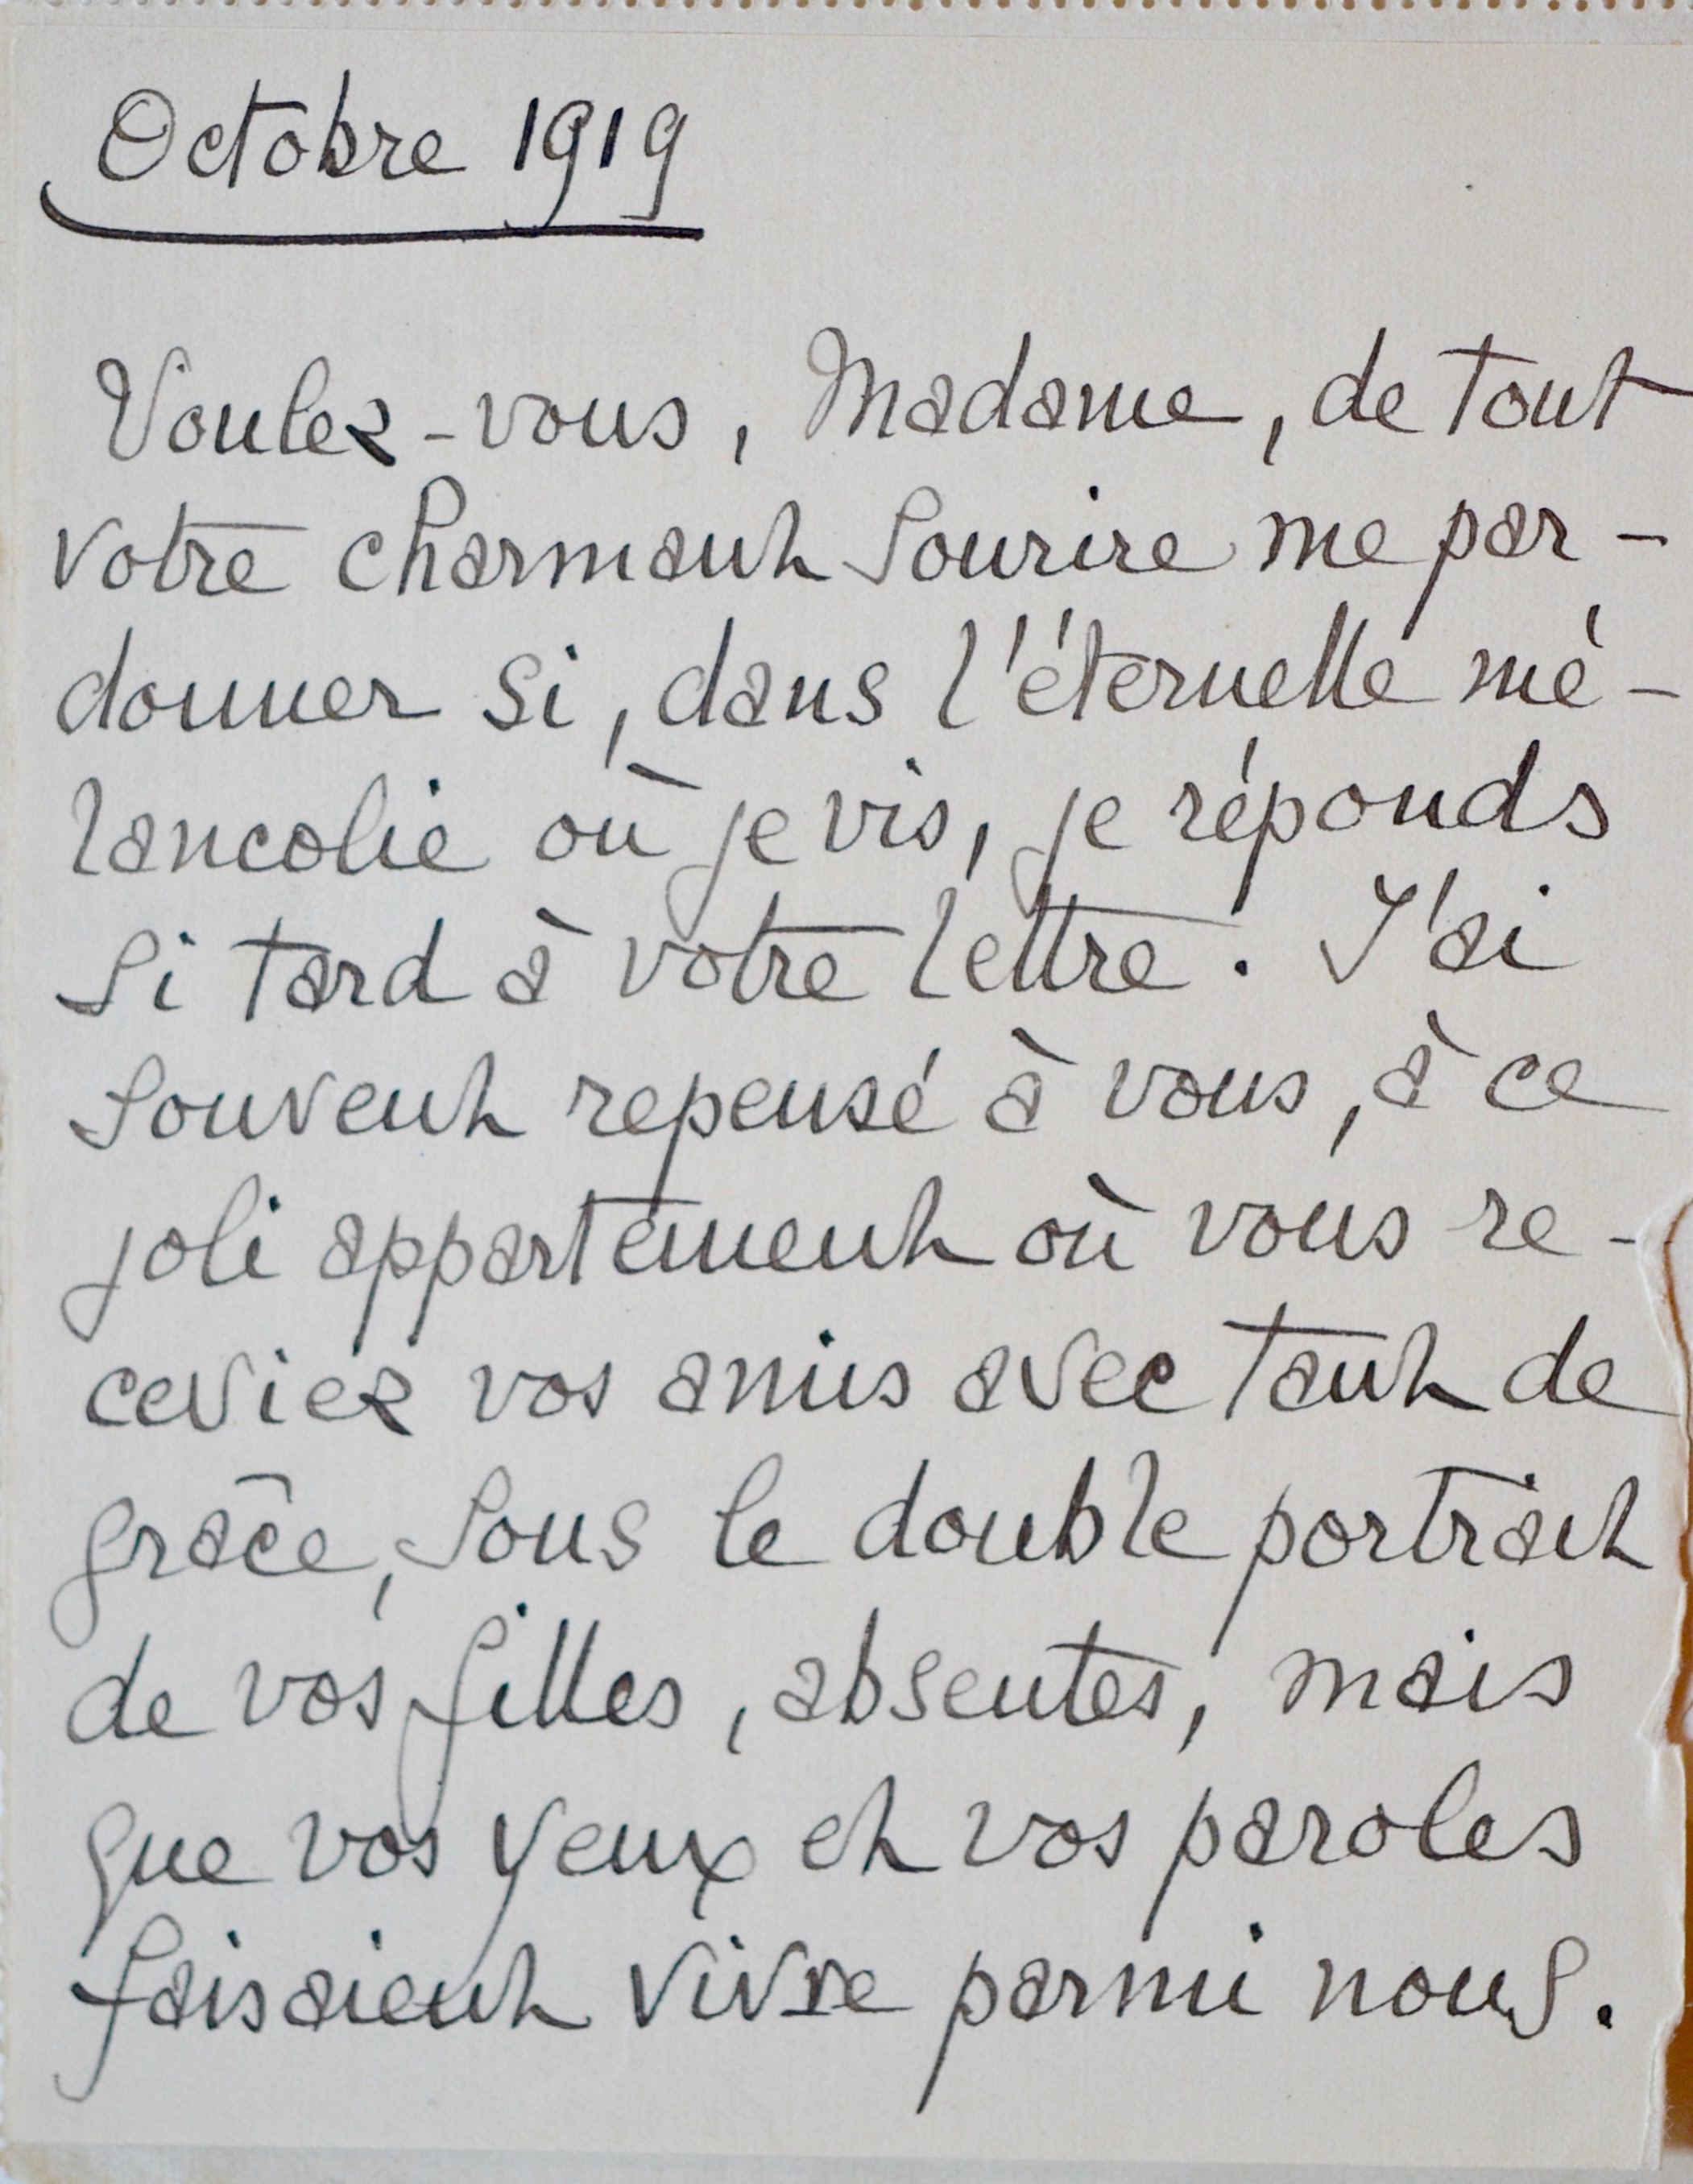 Octobre 1919
Voulez-vous, Madame, de tout
votre charmant sourire me par-
donner si, dans l'éternelle mé-
lancolie où je vis, je réponds
si tard à votre lettre. J'ai
souvent repensé à vous, à ce
joli appartement où vous re-
ceviez vos amis avec tant de
grâce, sous le double portrait
de vos filles, absentes, mais
que vos yeux et vos paroles
faisaient vivre parmi nous.